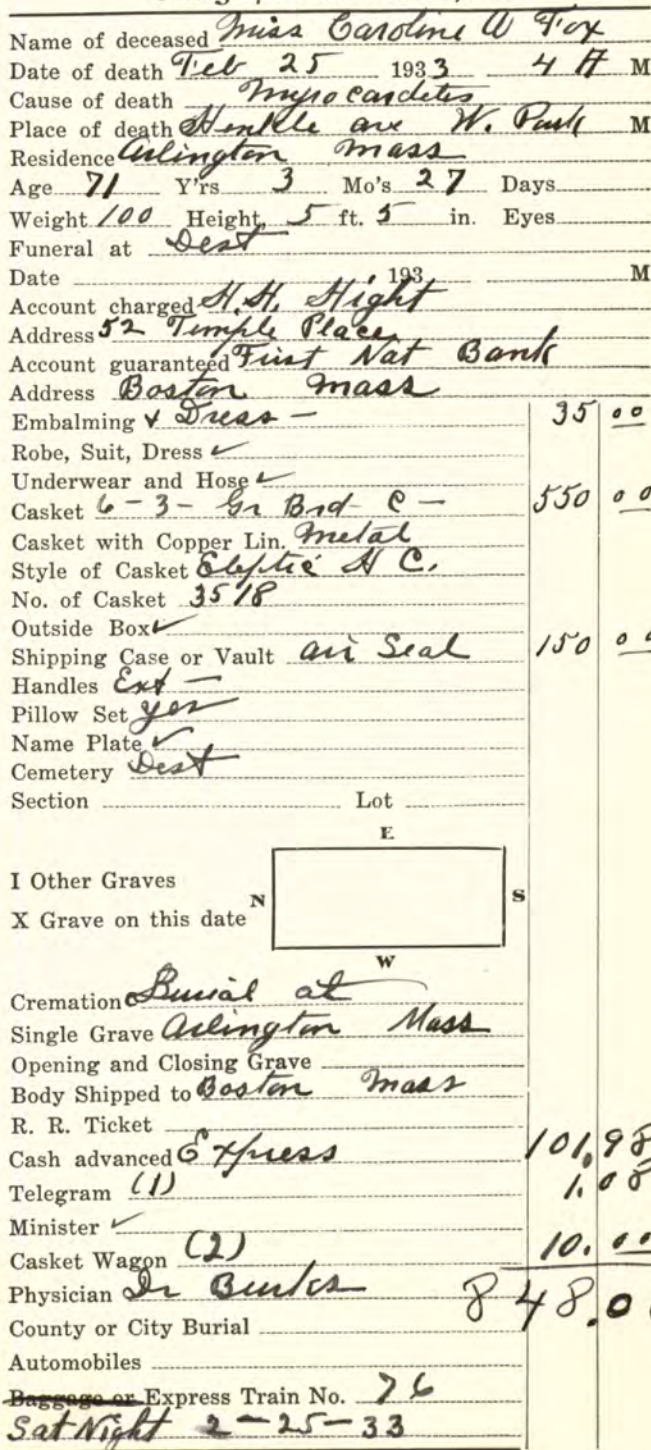 Name of deceased Miss Caroline A Fox
Date of death Feb 25 1933 4 A M
Cause of death Myrocardetes
Place of death Henkle ave W. Park M
Residence Arlington Mass
Age 71 Y'rs 3 Mo's 27 Days
Weight 100 Height, 5 ft. 5 in. Eyes
Funeral at Dest
Date , 193 M
Account charged H. H. Hight
Address 52 Temple Place
Account guaranteed First Nat Bank
Address Boston Mass
Embalming & Dress – 35 00
Robe, Suit, Dress ✓
Underwear and Hose ✓
Casket 6 - 3 - Gr Brd - C – 550 00
Casket with Copper Lin. Metal
Style of Casket Eleptic H C.
No. of Casket 3518
Outside Box ✓
Shipping Case or Vault Air Seal 150 00
Handles Ext –
Pillow Set yes
Name Plate ✓
Cemetery Dest
Section Lot
E
I Other Graves
N S
X Grave on this date
W
Cremation Burial at
Single Grave Arlington Mass
Opening and Closing Grave
Body Shipped to Boston Mass
R. R. Ticket
Cash advanced Express 101.98
Telegram (1) 1.08
Minister ✓
Casket Wagon (2) 10.00
Physician Dr 848.0
County or City Burial
Automobiles
Baggage or Express Train No. 76
Sat Night 2-25-33